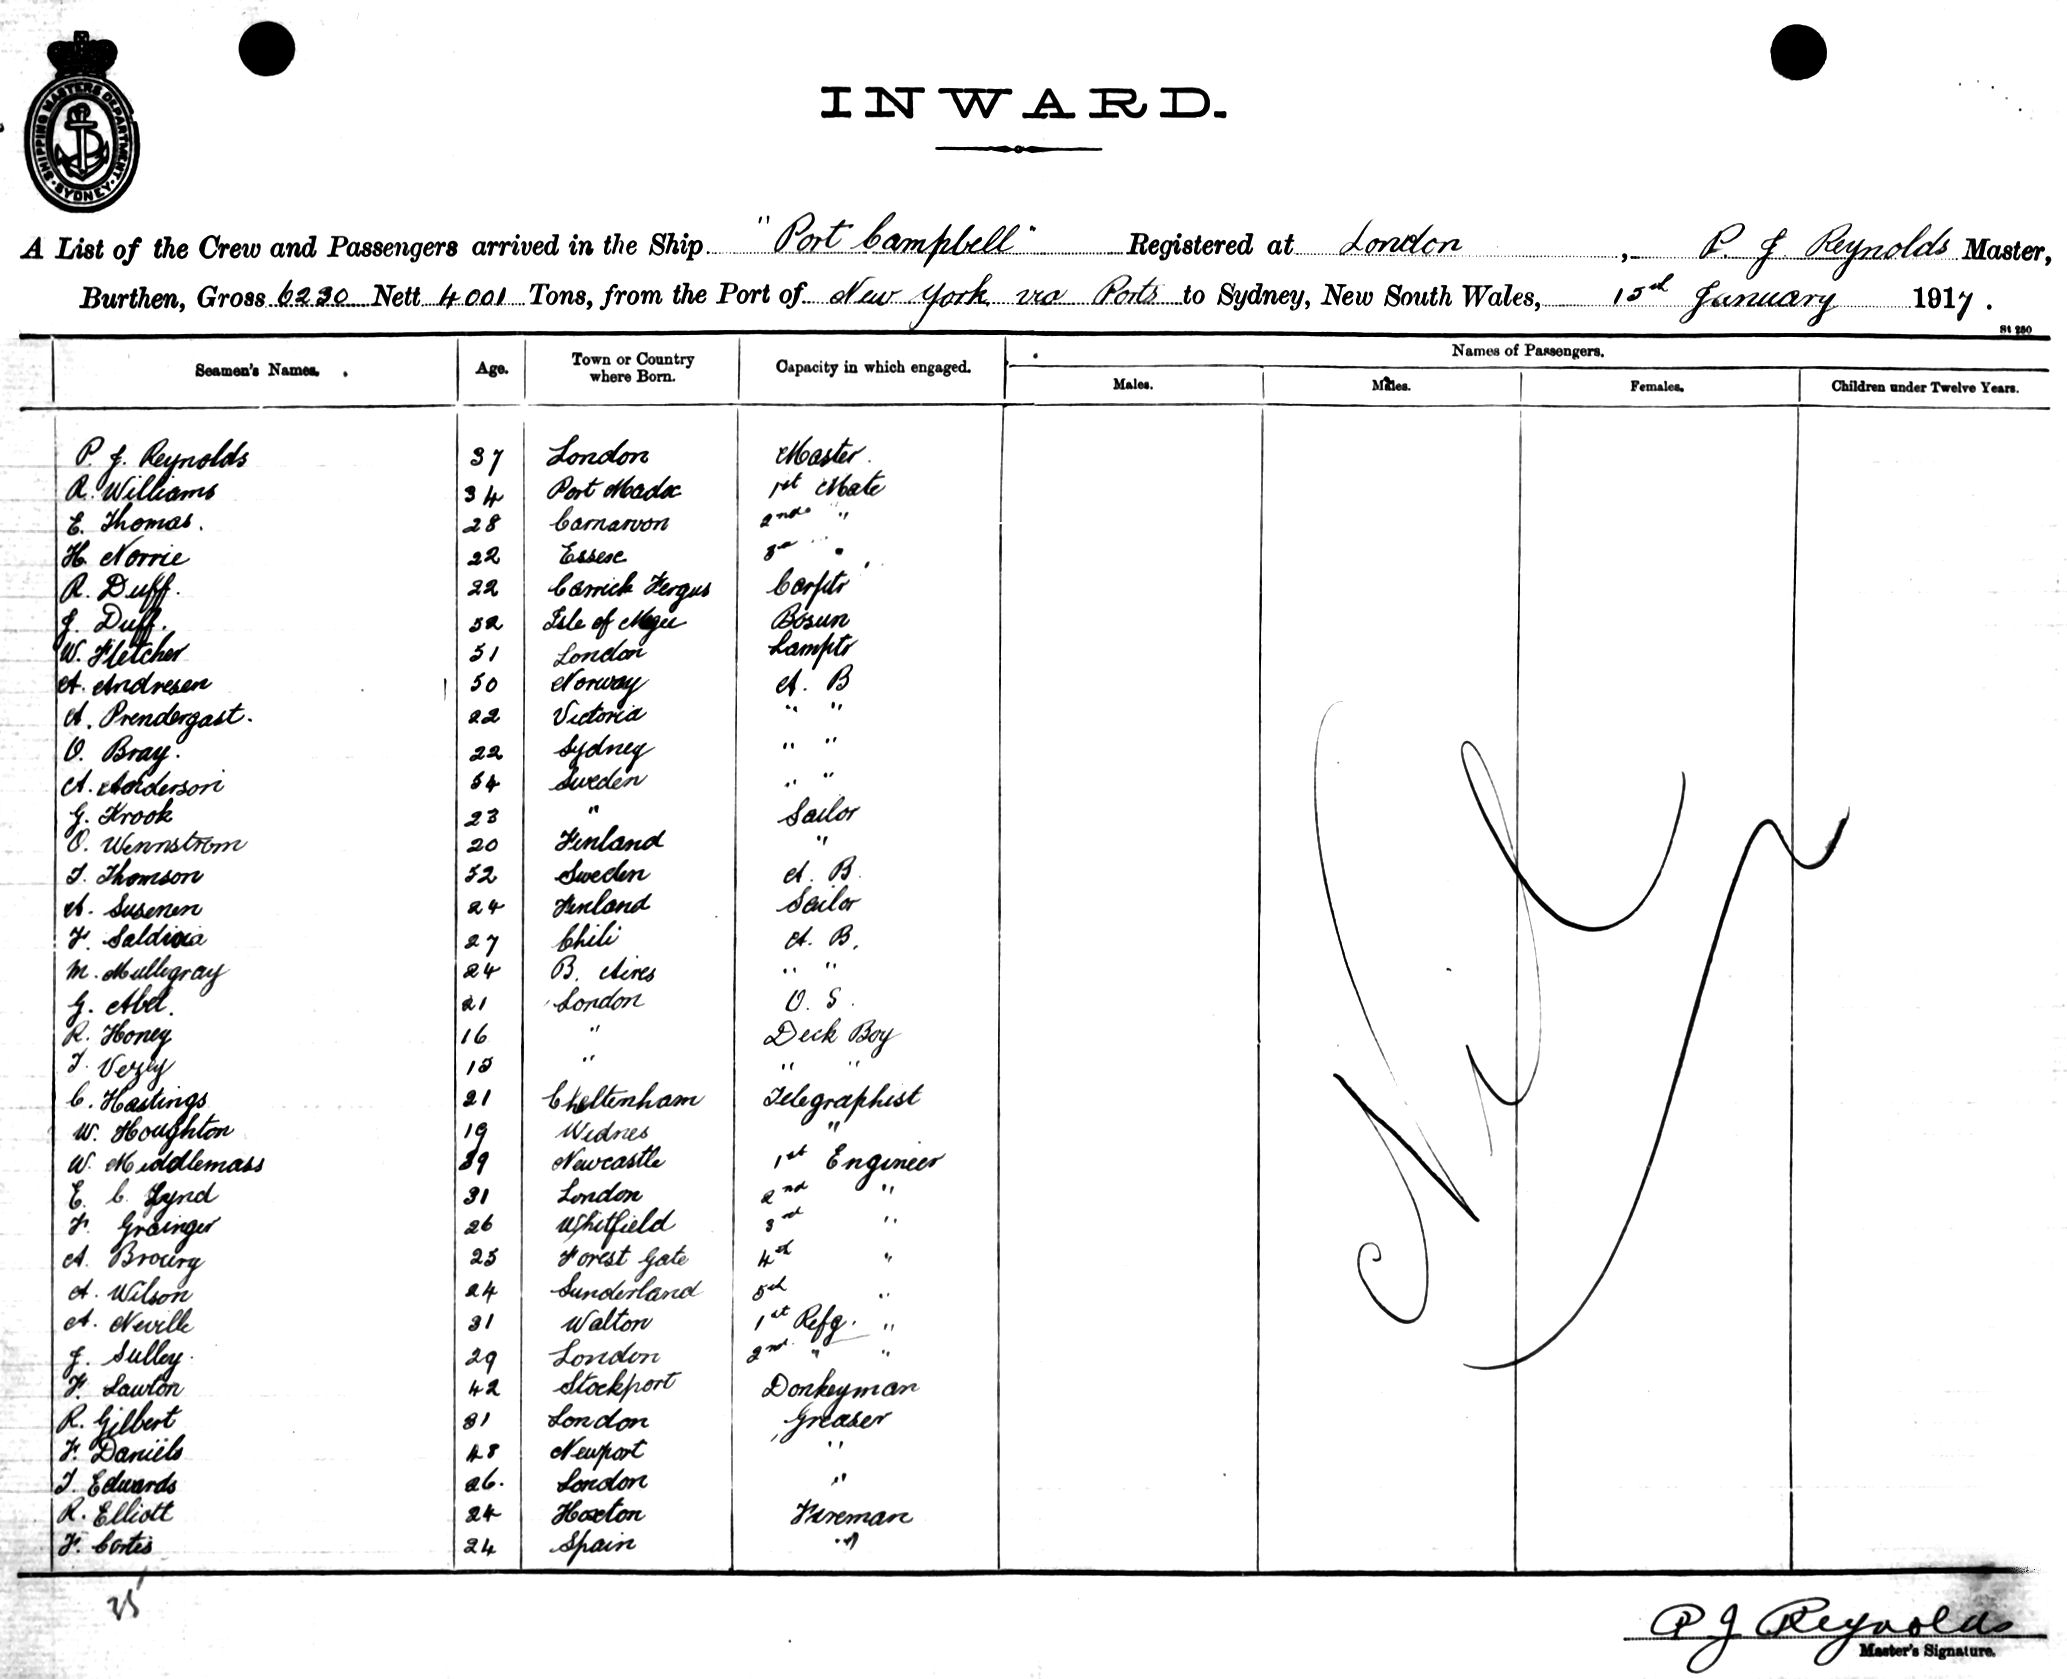 SHIPPING MASTERS DEPARTMENT · SYDNEY ·
INWARD.
A List of the Crew and Passengers arrived in the Ship "Port Campbell" Registered at London, P. J. Reynolds Master,
Burthen, Gross 6230 Nett 4001 Tons, from the Port of New York via Ports to Sydney, New South Wales, 15th January 1917.
St 250
Seamen's Names. Age. Town or Country where Born. Capacity in which engaged. Names of Passengers.
Males. Males. Females. Children under Twelve Years.
P. J. Reynolds 37 London Master.
R. Williams 34 Port Madoc 1st Mate
E. Thomas. 28 Carnarvon 2nd "
H. Norrie 22 Essex 3rd "
R. Duff. 22 Carrick Fergus Carptr
J. Duff. 52 Isle of Magee Bosun
W. Fletcher 51 London Lamptr
A. Andresen 50 Norway A. B
A. Prendergast. 22 Victoria " "
O. Bray. 22 Sydney " "
A. Anderson 54 Sweden " "
G. Krook 23 " Sailor
O. Wennstrom 20 Finland "
T. Thomson 52 Sweden A. B.
A. Susenen 24 Finland Sailor
F. Saldivia 27 Chili A. B.
M. Mulligray 24 B. Aires " "
G. Abel. 21 London O. S.
R. Honey 16 " Deck Boy
T. Vezey 15 " " "
C. Hastings 21 Cheltenham Telegraphist
W. Houghton 19 Widnes "
W. Middlemass 39 Newcastle 1st Engineer
E. C. Lynd 31 London 2nd "
F. Grainger 26 Whitfield 3rd "
A. 25 Forest Gate 4th "
A. Wilson 24 Sunderland 5th "
A. Neville 31 Walton 1st Refg. "
J. Sulley. 29 London 2nd " "
F. Lawton 42 Stockport Donkeyman
R. Gilbert 31 London Greaser
F. Daniels 48 Newport "
T. Edwards 26. London "
R. Elliott 24 Hoxton Fireman
F. Cortis 24 Spain "
Nil
35
P J Reynolds
Master's Signature.